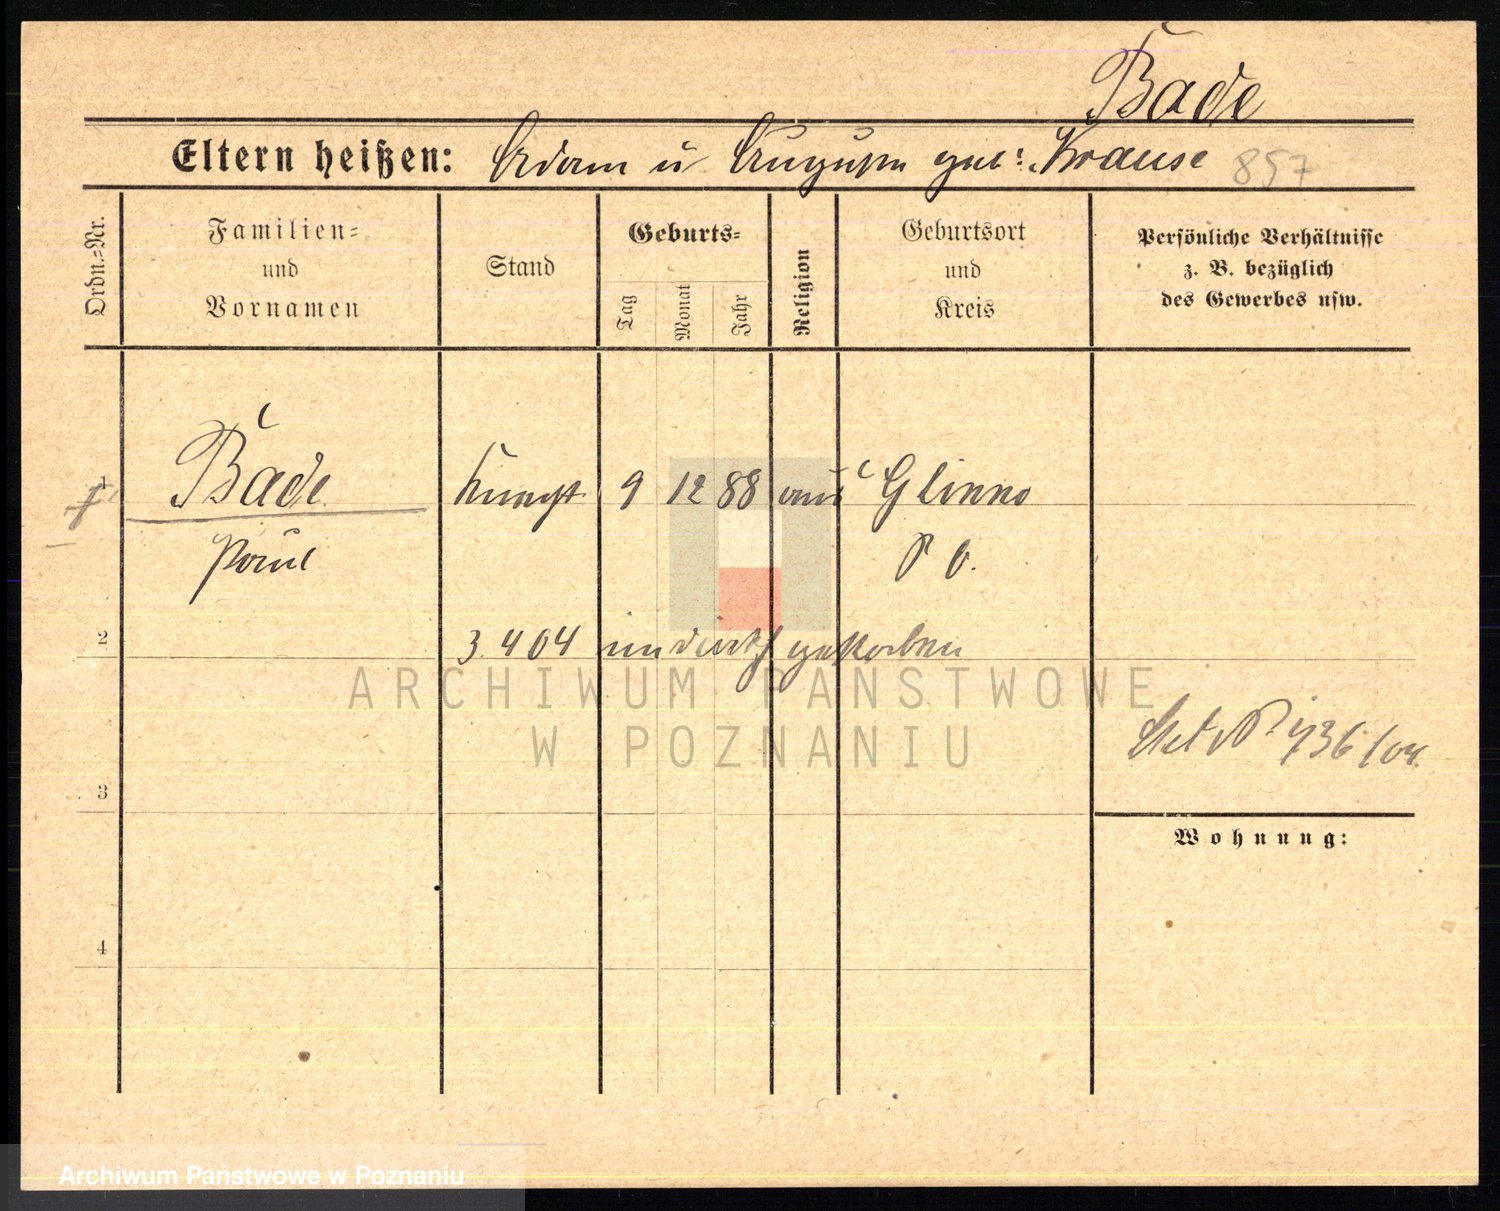 Bade
Eltern heißen: Adam u August geb: Krause 857
Ordn.-Nr.
Familien-
und
Vornamen
Stand
Geburts-
Tag
Monat
Jahr
Religion
Geburtsort
und
Kreis
Persönliche Verhältnisse
z. B. bezüglich
des Gewerbes usw.
1 Bade Knecht 9 12 88 aus Glinno
Paul P O.
2 3 4 04 gestorben
ARCHIWUM PAŃSTWOWE
W POZNANIU
736/04.
3
Wohnung:
4
Archiwum Państwowe w Poznaniu